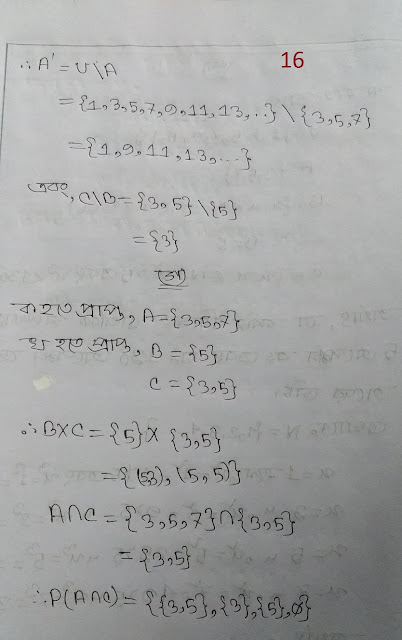 16
∴A' = U\A
={1,3,5,7,9,11,13,..} \ {3,5,7}
={1,9,11,13,...}
এবং, C\B={3,5} \{5}
={3}
(গ)
ক হতে প্রাপ্ত, A={3,5,7}
খ হতে প্রাপ্ত, B = {5}
C = {3,5}
∴B×C={5}× {3,5}
={(5,3), (5,5)}
A∩C={3,5,7}∩{3,5}
={3,5}
∴P(A∩C)={{3,5},{3},{5},∅}